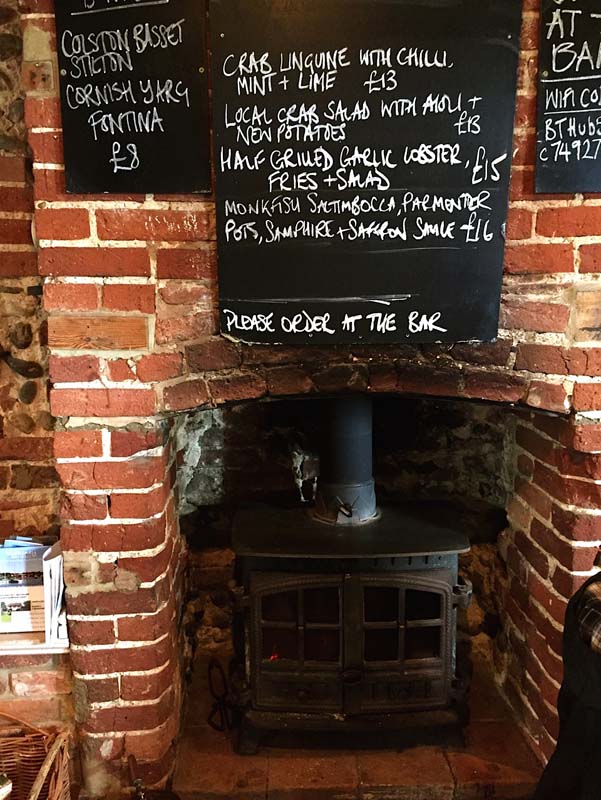 COLSTON BASSET
STILTON
CORNISH YARG
FONTINA
£8
CRAB LINGUINE WITH CHILLI,
MINT + LIME £13
LOCAL CRAB SALAD WITH AIOLI +
NEW POTATOES £13
HALF GRILLED GARLIC LOBSTER,
FRIES + SALAD £15
MONKFISH SALTIMBOCCA, PARMENTER
POTS, SAMPHIRE + SAFFRON SAUCE £16
PLEASE ORDER AT THE BAR
AT
BA
WIFI CO
BTHUB
C74927